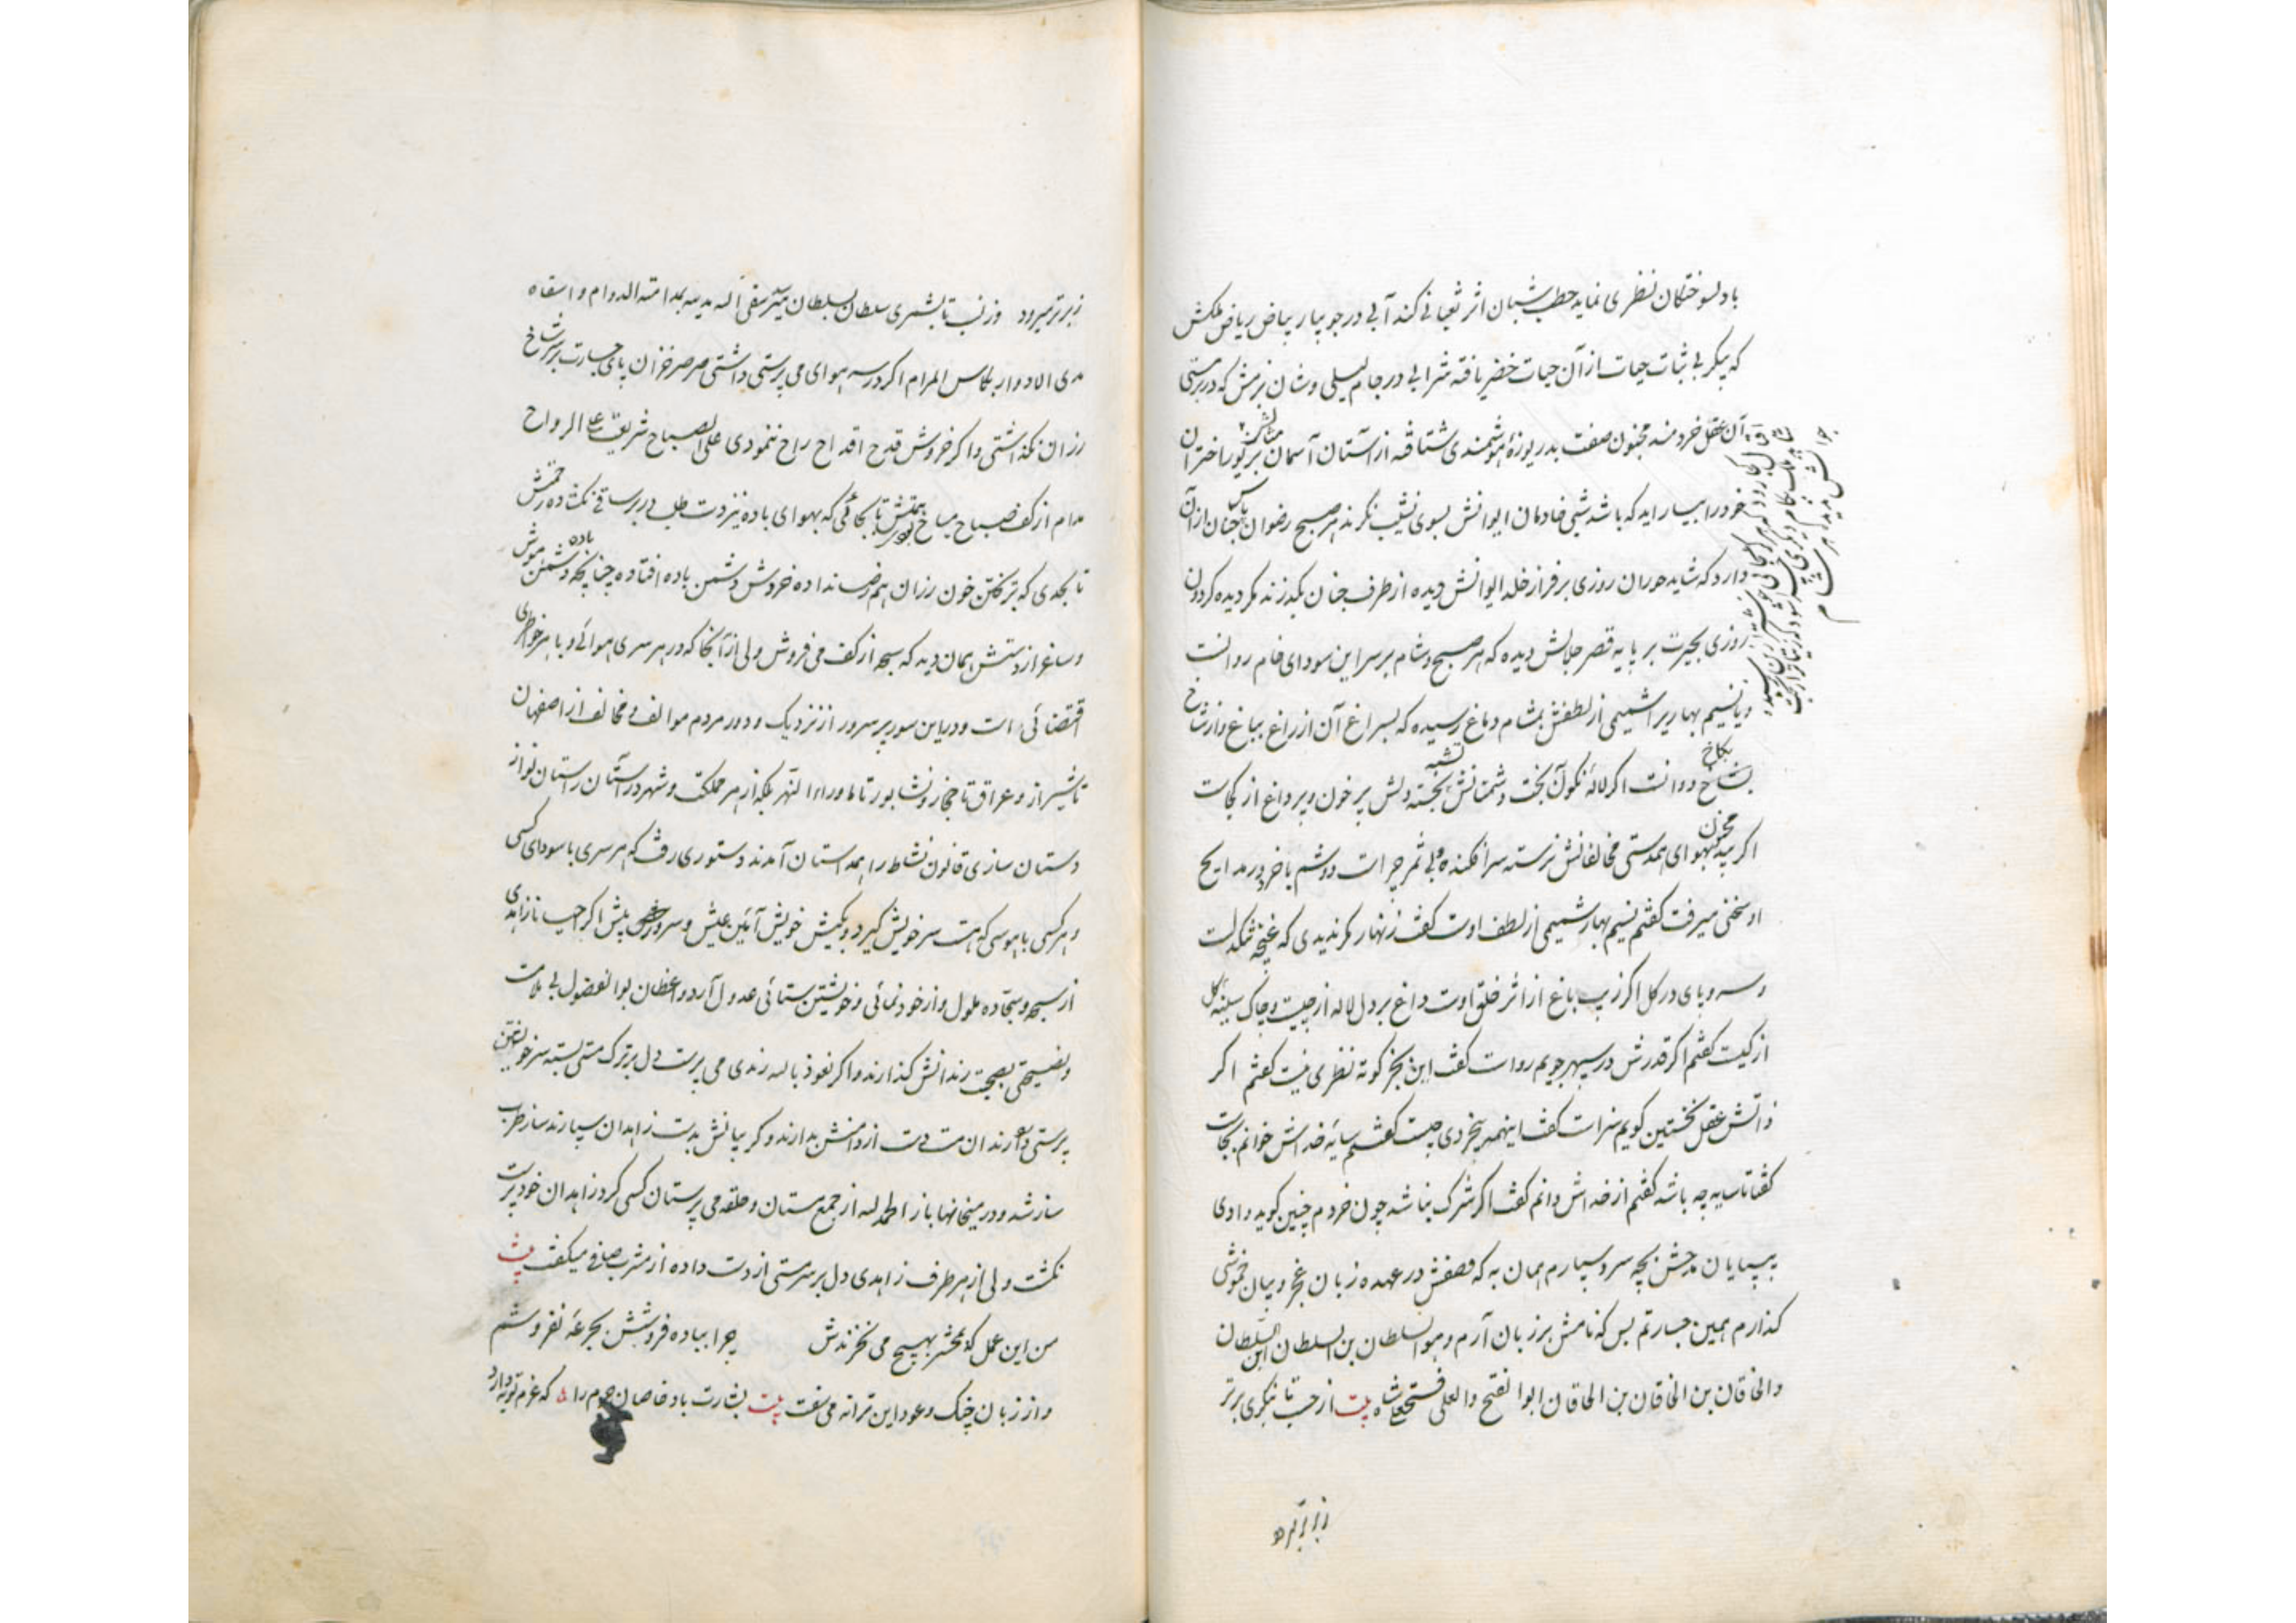 بادلسوختگان نظری نماید حطب شبان اثر ثعبانی کند آبی در جویبار بیاض ریاض ملکش
که پیکر بی ثبات حیات از آن حیات خضر یافته شرابی در جام لیلی وشان بزمش که در سرمستی
آن عقل خردمند مجنون صفت بدریوزهٔ هوشمندی شتافته از آستان آسمان اختران
خود را بیاراید که باشد شبی خادمان ایوانش بسوی نشیب نگرند هر صبح رضوان جنان از آن
دارد که شاید حوران روزی بر فراز خلد ایوانش دیده از طرف جنان بگذرند مگر دیده گردون
روزی بحیرت بر پایه قصر جلالش دیده که هر صبح و شام بر سر این سودای خام روانست
و یا نسیم بهاریرا شمیمی از لطفش بمشام دماغ رسیده که بسراغ آن از راغ بباغ و از شاخ
بشاخ دوانست اگر لالهٔ نگون بخت دشمنانش نجسته دلش پر خون و پر داغ از کجاست
اگر بید بهوای همدستی مخالفانش نرسته سرافکنده و بی ثمر چراست دوشم با خرد در مدایح
او سخنی میرفت گفتم نسیم بهار شمیمی از لطف اوست گفت زنهار مگر ندیدی که غنچه تنگدلست
و سرو پای در گل اگر زیب باغ از اثر خلق اوست داغ بر دل لاله از چیست و چاک سینه گل
از کیست گفتم اگر قدرش در سپهر جویم رواست گفت این بجز کوته نظری نیست گفتم اگر
ذاتش عقل نخستین گویم سزاست گفت اینهمه بیخردی چیست گفتم سایهٔ خداش خوانم بجاست
گفتا تا سایه چه باشد گفتم از خداش دانم گفت اگر شرک نباشد چون خردم چنین گوید وادی
بی پایان مدحش بچه سر و سپارم همان به که وصفش در عهده زبان عجز و بیان خموشی
گذارم همین جسارتم بس که نامش بر زبان آرم و هو السلطان بن السلطان ابن السلطان
والخاقان بن الخاقان بن الخاقان ابوالفتح والعلی فتحعلیشاه بیت از حسب تا بنگری برتر
زبرتر میرود
زبرتر میرود وز نسب تا بشمری سلطان سلطان میرسد
مدی الادوار بکاس المرام اگر در سر هوای می پرستی داشتی صرصر خزان پای جسارت بر سر شاخ
رزان نگذاشتی و اگر خروش قدح اقداح راح ننمودی علی الصباح
مدام از کف صباح که بهوای باده نیز دست طلب در بر ساقی نگشاده
تا بحدی که خون رزان هم رضا نداده خروش دشمن باده افتاده چنانچه دشمن
و ساغر از دستش همان دید که سبحه از کف می فروش ولی از آنجا که در هر سری هوائی و با هر خاطری
اقتضائی است و در این سور پر سرور از نزدیک و دور مردم موالف و مخالف از اصفهان
تا شیراز و عراق تا و نشابور تا ماوراء النهر بلکه از هر مملکت و شهر در آستان راستان نواز
دستان سازی قانون نشاط را همداستان آمدند دستوری رفت که هر سری با سودای کسی
و هر کسی با هوسی که هست سر خویش گیرد و بکیش خویش آئین عیش و سرور پیش اگر نا زاهدی
از سبحه و سجاده ملول و از خود نمائی و خویشتن ستائی عدول آرد واعظان بوالفضول بی ملامت
و نصیحتی بصحبت رندانش گذارند و اگر نعوذ بالله رندی می پرست دل بر ترک مستی بسته سر خویشتن
پرستی دارد رندان مست دست از دامنش بدارند و گریبانش بدست زاهدان سپارند ساز طرب
ساز شد و در میخانها باز الحمد لله از جمع مستان و حلقه می پرستان کسی گرد زاهدان خود پرست
نگشت ولی از هر طرف زاهدی دل بر سر مستی از دست داده از مشرب صافی میگفت بیت
من این عمل که بمحشر بهیچ می نخرندش چرا بباده فروشش بجرعهٔ نفروشم
و از زبان چنگ و عود این ترانه می سفت بیت بشارت باد خاصان حرم را که عزم توبه دارد